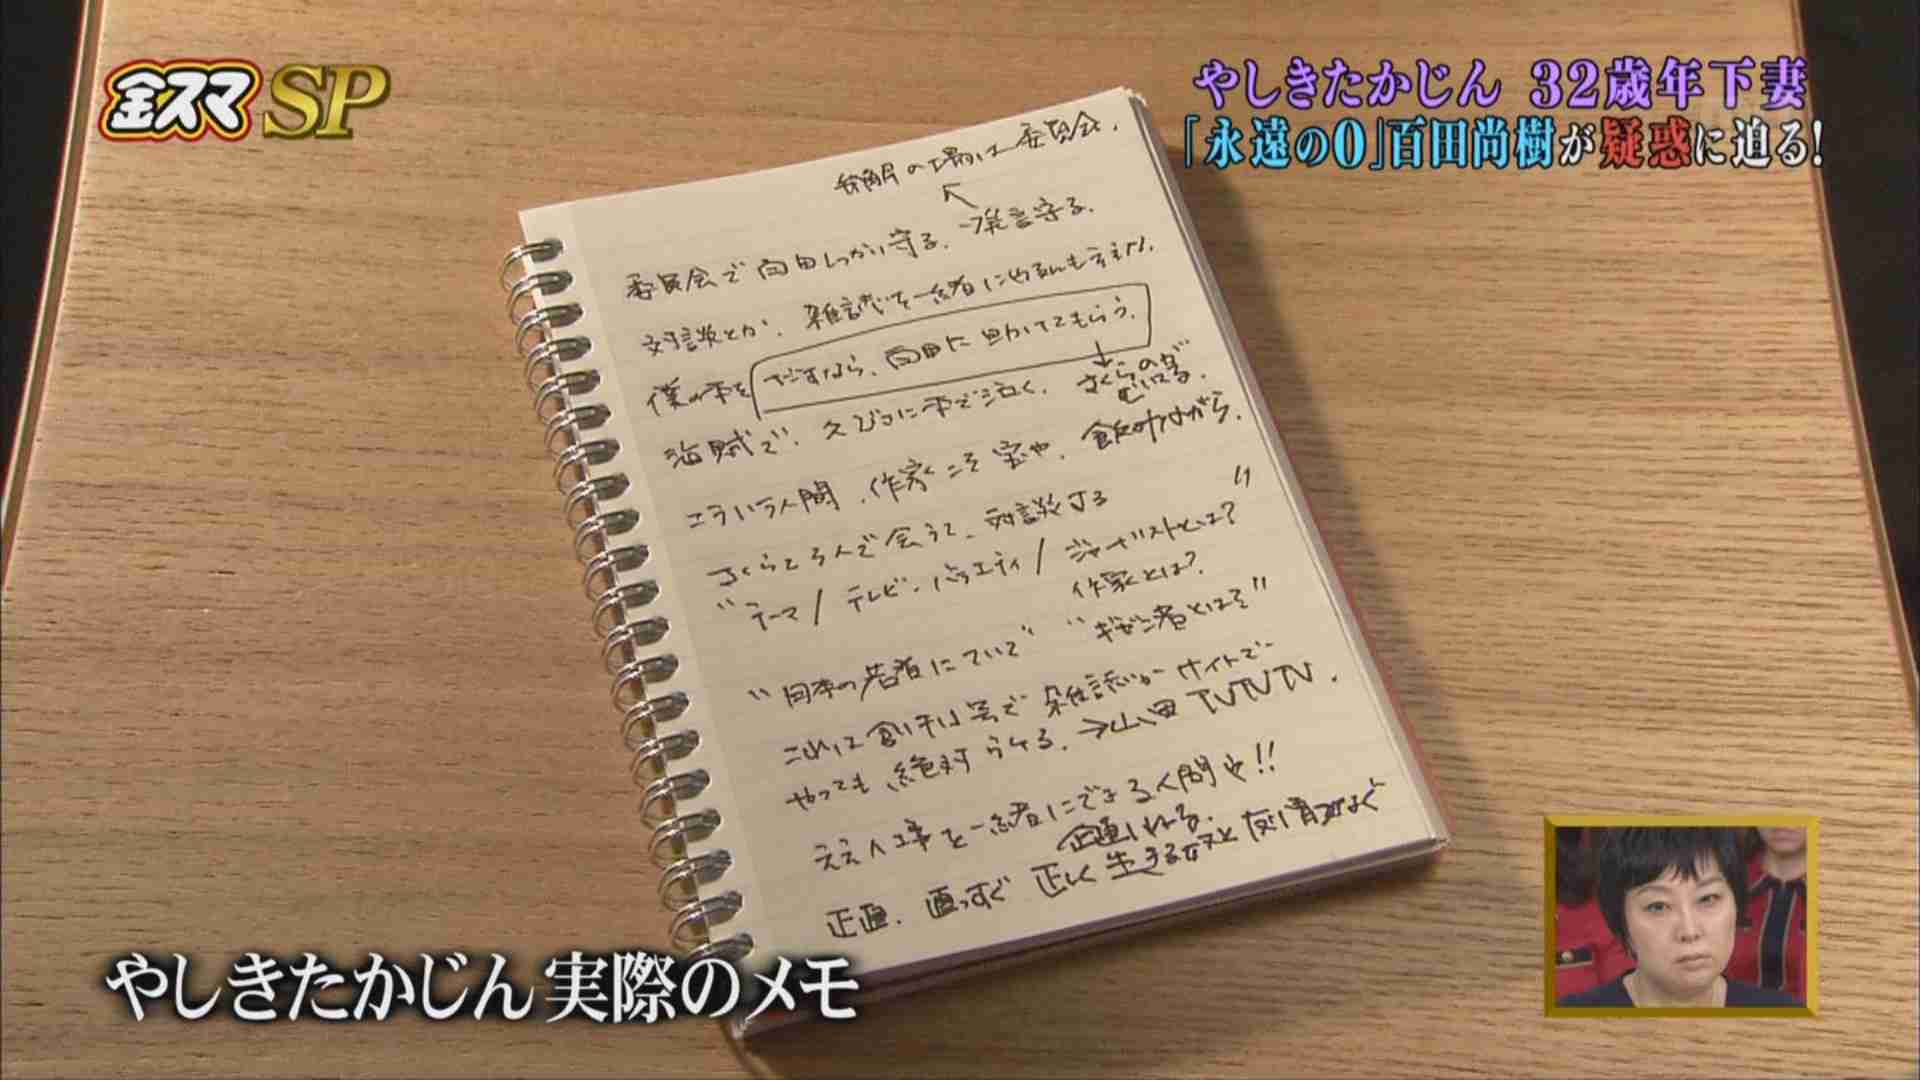 金スマSP
やしきたかじん 32歳年下妻
「永遠の0」百田尚樹が疑惑に迫る!
の場は委員会.
委員会で しっかり守る. 発言守る.
対談とか. 雑誌を一緒にやるんもええ!!.
僕の本をだすなら、 に助けてもらう.
海賊で. 久びさに本で泣く.
こういう人間、作家こそ宝や. 飯食いながら.
さくらと3人で会うて、対談する
"テーマ/テレビ・バラエティ/ジャーナリストとは?"
作家とは?
"日本の若者について" "ギゼン者とはそ"
雑誌かサイトで
やっても絶対うける. → TVTVTV.
ええ仕事を一緒にできる人間や!!
企画いれる.
正直. 直っすぐ 正しく生きる奴と
やしきたかじん実際のメモ